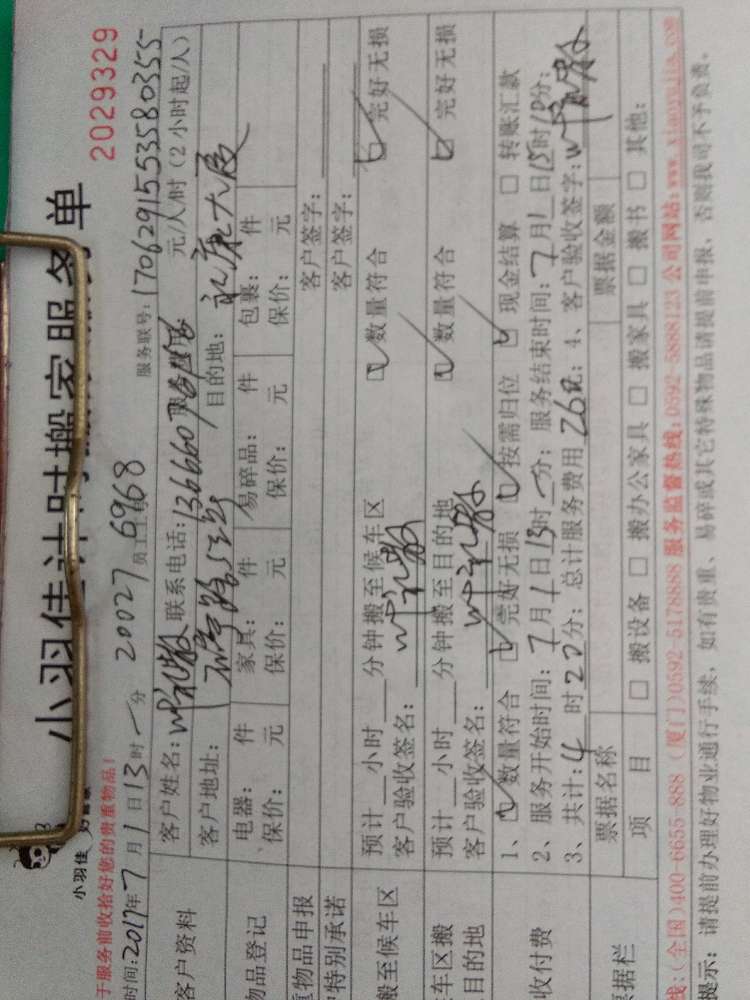 小羽佳计时搬家服务单
2029329
小羽佳 好管家
于服务前收拾好您的贵重物品!
服务联号: 17062915535580355
时间: 2017年7月1日13时一分 20027 员工工号 6968 元/人/时 (2小时起/人)
客户资料
客户姓名: 联系电话: 136660
客户地址: 目的地: 大厦
物品登记
电器: 件 家具: 件 易碎品: 件 包裹: 件
保价: 元 保价: 元 保价: 元 保价: 元
重物品申报 客户签字:
特别承诺 客户签字:
搬至候车区
预计__小时__分钟搬至候车区 数量符合 完好无损
客户验收签名:
车区搬
目的地
预计__小时__分钟搬至目的地 数量符合 完好无损
客户验收签名:
收付费
1、 数量符合 完好无损 按需归位 现金结算 转账汇款
2、服务开始时间: 7月1日13时一分; 服务结束时间: 7月1日15时10分;
3、共计: 4 时20分; 总计服务费用 260元; 4、客户验收签字:
票据栏
票据名称 票据金额
项 目 搬设备 搬办公家具 搬家具 搬书 其他:
线: (全国)400-6655-888 (厦门)0592-5178888 服务监督热线: 0592-5888123 公司网站: www.xiaoyujia.com
提示: 请提前办理好物业通行手续, 如有贵重、易碎或其它特殊物品请提前申报, 否则我司不予负责.